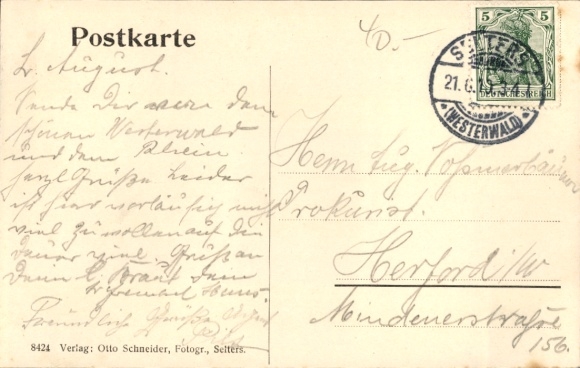 Postkarte
40.-
5
DEUTSCHES REICH
SELTERS
21.6.1
(WESTERWALD)
L. August.
Sende Dir von dem
schönen Westerwald
und dem Rhein
herzl Grüße leider
ist hier vorläufig nicht
viel zu wollen auf die
dauer viele Grüße an
Deine l. Braut Dein
Freund Hans.
Freundlich Grüße
Herrn Aug. Voßmerbäumer
Prokurist.
Herford i/W
Mindenerstraße
156.
8424 Verlag: Otto Schneider, Fotogr., Selters.